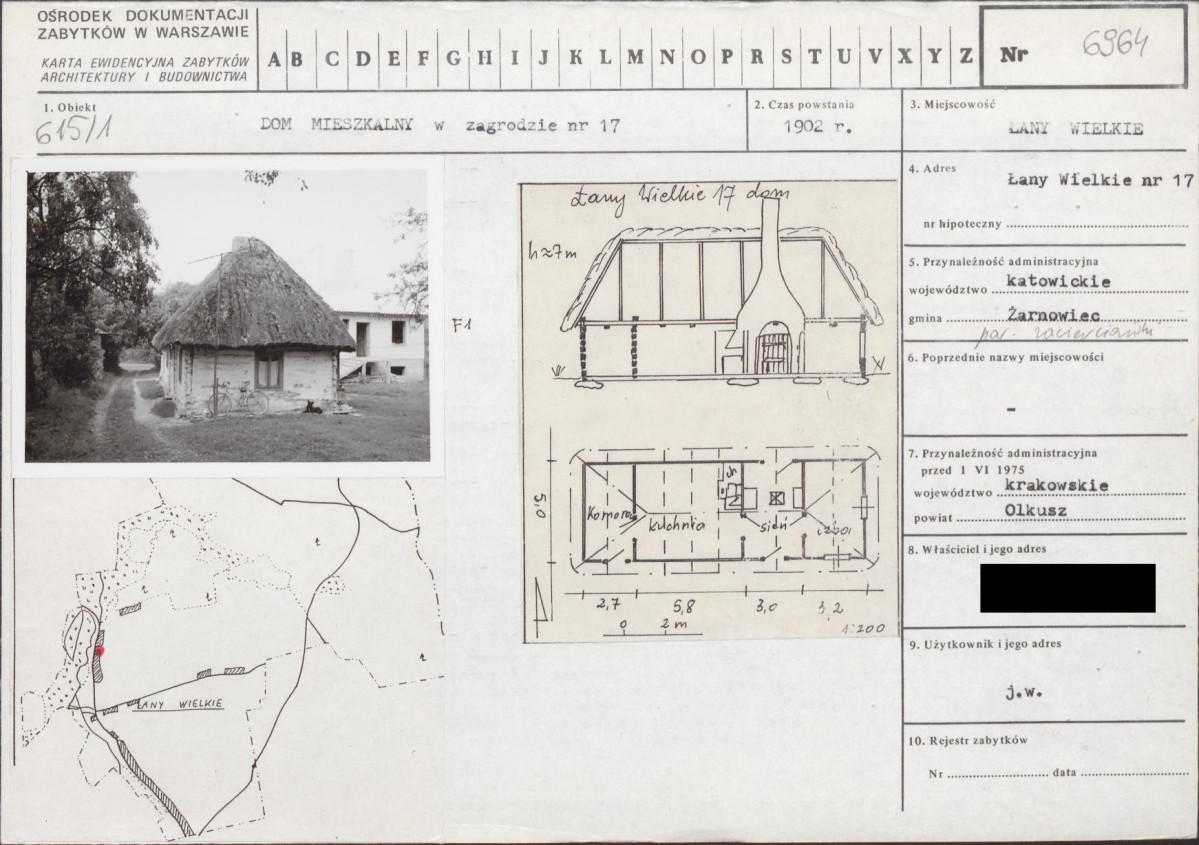 OŚRODEK DOKUMENTACJI
ZABYTKÓW W WARSZAWIE
KARTA EWIDENCYJNA ZABYTKÓW
ARCHITEKTURY I BUDOWNICTWA
A B C D E F G H I J K L M N O P R S T U V X Y Z
Nr 6964
1. Obiekt
615/1
DOM MIESZKALNY w zagrodzie nr 17
2. Czas powstania
1902 r.
3. Miejscowość
ŁANY WIELKIE
4. Adres
Łany Wielkie nr 17
nr hipoteczny
5. Przynależność administracyjna
województwo katowickie
gmina Żarnowiec
6. Poprzednie nazwy miejscowości
-
7. Przynależność administracyjna
przed 1 VI 1975
województwo krakowskie
powiat Olkusz
8. Właściciel i jego adres
9. Użytkownik i jego adres
j.w.
10. Rejestr zabytków
Nr data
F1
Łany Wielkie 17 dom
h≈7m
5,0
Komora
kuchnia
sień
izba
2,7 5,8 3,0 3,2
0 2 m
1:200
ŁANY WIELKIE